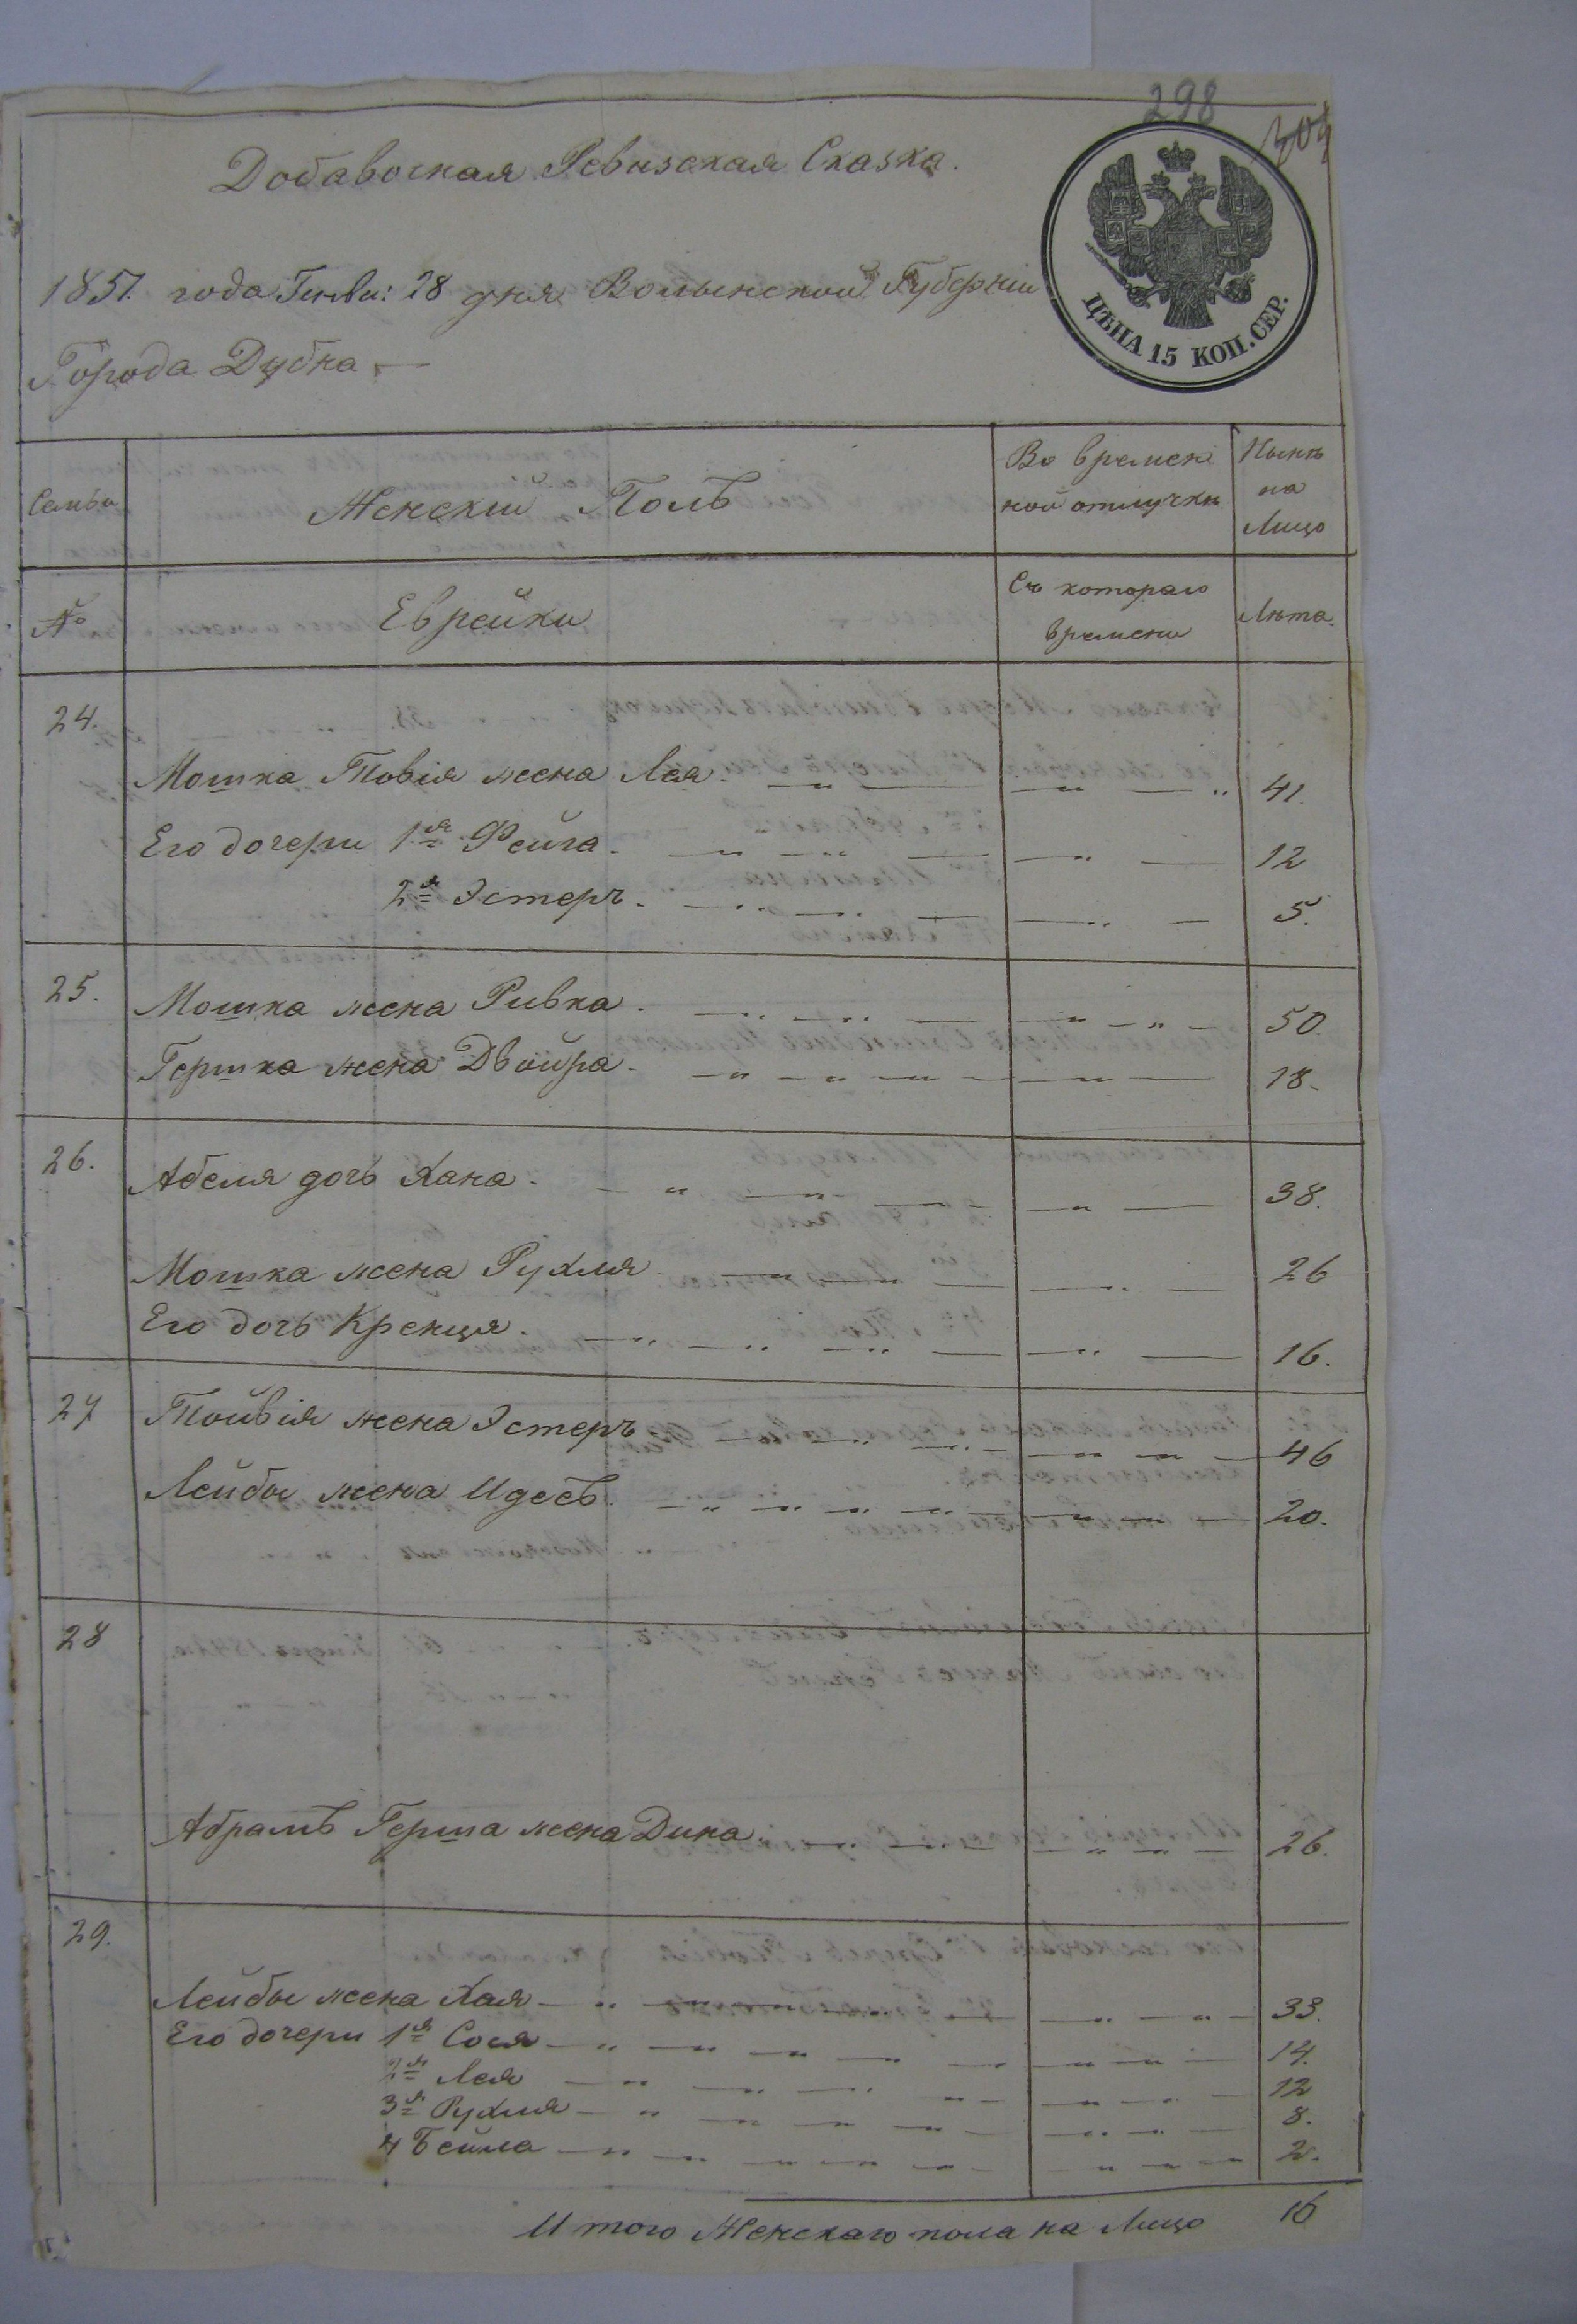 298
304
Добавочная Ревизская Сказка.
1851 года Генва: 28 дня Волынской Губернии
Города Дубна
ЦѢНА 15 КОП. СЕР.
Семьи
Женский Полъ
Во времен
ной отлучкѣ
Нынѣ
на
Лицо
№
Еврейки
Съ котораго
времени
Лѣта
24.
Мошка Товія жена Лея. 41.
Его дочери 1я Фейга. 12
2я Эстеръ. 5.
25.
Мошка жена Ривка. 50.
Гершка жена Двойра. 18.
26.
Абеля дочь Хана. 38.
Мошка жена Рухля 26
Его дочь Кренця. 16.
27
Тойвія жена Эстеръ 46
Лейбы жена Идесъ. 20.
28
Абрамъ Герша жена Дина. 26.
29.
Лейбы жена Хая 33.
Его дочери 1я Сося 14.
2я Лея 12
3я Рухля 8.
4 Бейла 2.
Итого Женскаго пола на Лицо 16